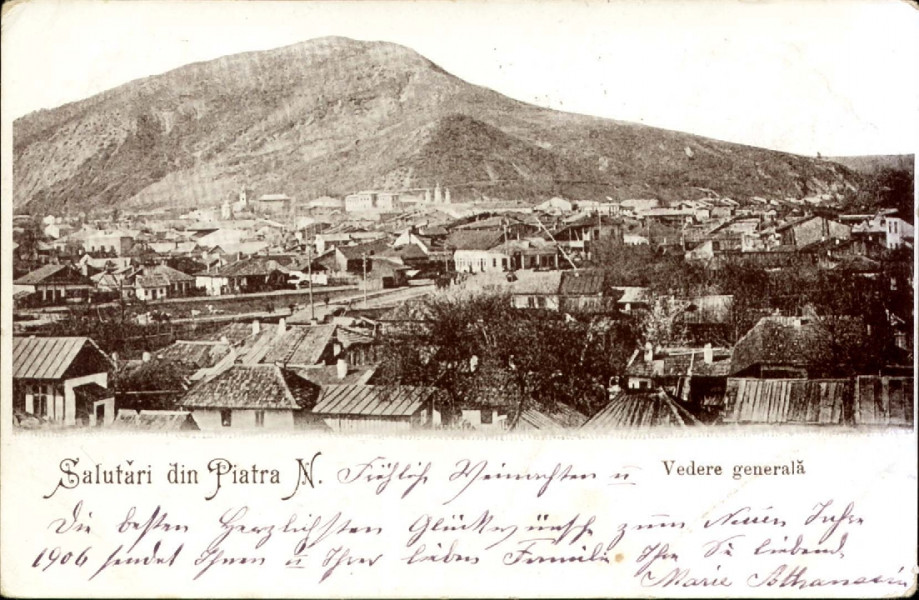 Salutări din Piatra N. Fröhlich Weinachten u Vedere generală
Die besten Herzlichsten Glückwünsche zum Neuen Jahre
1906 sendet Ihnen u Ihrer lieben Familie Ihre Sie liebende
Marie